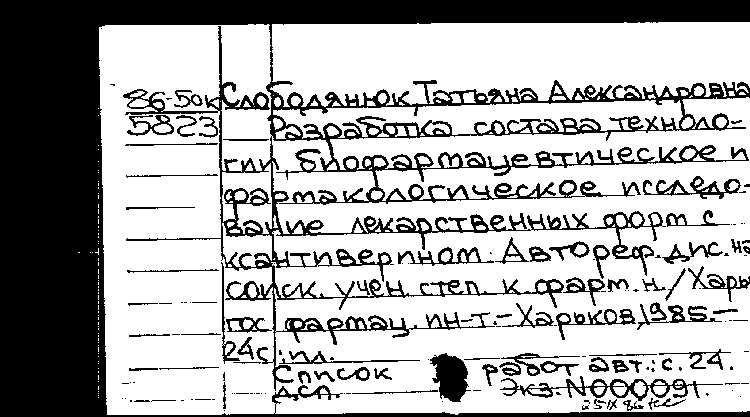 86-50к Слободянюк, Татьяна Александровна
5823 Разработка состава, техноло-
гии, биофармацевтическое и
фармакологическое исследо-
вание лекарственных форм с
ксантиверином: Автореф. дис. на
соиск. учен. степ. к. фарм. н. / Харьк
гос фармац. ин-т. - Харьков, 1985. -
24с: ил.
Список работ авт.: с. 24.
Д.с.п. Экз. N000091.